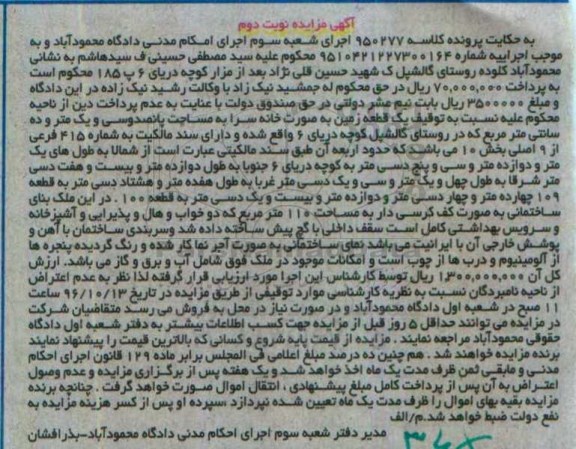 آگهی مزایده نوبت دوم
به حکایت پرونده کلاسه ۹۵۰۲۷۷ اجرای شعبه سوم اجرای احکام مدنی دادگاه محمودآباد و به
موجب اجراییه شماره ۹۵۱۰۴۲۱۲۲۷۳۰۰۱۶۴ محکوم علیه سید مصطفی حسینی ف سیدهاشم به نشانی
محمودآباد کلوده روستای گالشپل ک شهید حسین قلی نژاد بعد از مزار کوچه دریای ۶ پ ۱۸۵ محکوم است
به پرداخت ۷۰,۰۰۰,۰۰۰ ریال در حق محکوم له جمشید نیک زاد با وکالت رشید نیک زاده در این دادگاه
و مبلغ ۳۵۰۰۰۰۰ ریال بابت نیم عشر دولتی در حق صندوق دولت با عنایت به عدم پرداخت دین از ناحیه
محکوم علیه نسبت به توقیف یک قطعه زمین به صورت خانه سرا به مساحت پانصدوسی و یک متر و ده
سانتی متر مربع که در روستای گالشپل کوچه دریای ۶ واقع شده و دارای سند مالکیت به شماره ۴۱۵ فرعی
از ۹ اصلی بخش ۱۰ می باشد که حدود اربعه آن طبق سند مالکیتی عبارت است از شمالا به طول های یک
متر و دوازده متر و سی و پنج دسی متر به کوچه دریای ۶ جنوبا به طول دوازده متر و بیست و هفت دسی
متر شرقا به طول چهل و یک متر و سی و یک دسی متر غربا به طول هفده متر و هشتاد دسی متر به قطعه
۱۰۹ چهارده متر و چهار دسی متر و دوازده متر و بیست و یک دسی متر به قطعه ۱۰۰ . در این ملک بنای
ساختمانی به صورت کف کرسی دار به مساحت ۱۱۰ متر مربع که دو خواب و هال و پذیرایی و آشپزخانه
و سرویس بهداشتی کامل است سقف داخلی با گچ پیش ساخته داده شد وسربندی ساختمان با آهن و
پوشش خارجی آن با ایرانیت می باشد نمای ساختمانی به صورت آجر نما کار شده و رنگ گردیده پنجره ها
از آلومینیوم و درب ها از چوب است و امکانات موجود در ملک فوق شامل آب و برق و گاز می باشد. ارزش
کل آن ۱,۳۰۰,۰۰۰,۰۰۰ ریال توسط کارشناس این اجرا مورد ارزیابی قرار گرفته لذا نظر به عدم اعتراض
از ناحیه نامبردگان نسبت به نظریه کارشناسی موارد توقیفی از طریق مزایده در تاریخ ۹۶/۱۰/۱۳ ساعت
۱۱ صبح در شعبه اول دادگاه محمودآباد و در صورت نیاز در محل به فروش می رسد متقاضیان شرکت
در مزایده می توانند حداقل ۵ روز قبل از مزایده جهت کسب اطلاعات بیشتر به دفتر شعبه اول دادگاه
حقوقی محمودآباد مراجعه نمایند . مزایده از قیمت پایه شروع و کسانی که بالاترین قیمت را پیشنهاد نمایند
برنده مزایده خواهند شد . هم چنین ده درصد مبلغ اعلامی فی المجلس برابر ماده ۱۲۹ قانون اجرای احکام
مدنی و مابقی ثمن ظرف مدت یک ماه اخذ خواهد شد و یک هفته پس از برگزاری مزایده و عدم وصول
اعتراض به آن پس از پرداخت کامل مبلغ پیشنهادی ، انتقال اموال صورت خواهد گرفت . چنانچه برنده
مزایده بقیه بهای اموال را ظرف مدت یک ماه تعیین شده نپردازد ،سپرده او پس از کسر هزینه مزایده به
نفع دولت ضبط خواهد شد.م/الف
مدیر دفتر شعبه سوم اجرای احکام مدنی دادگاه محمودآباد-بذرافشان